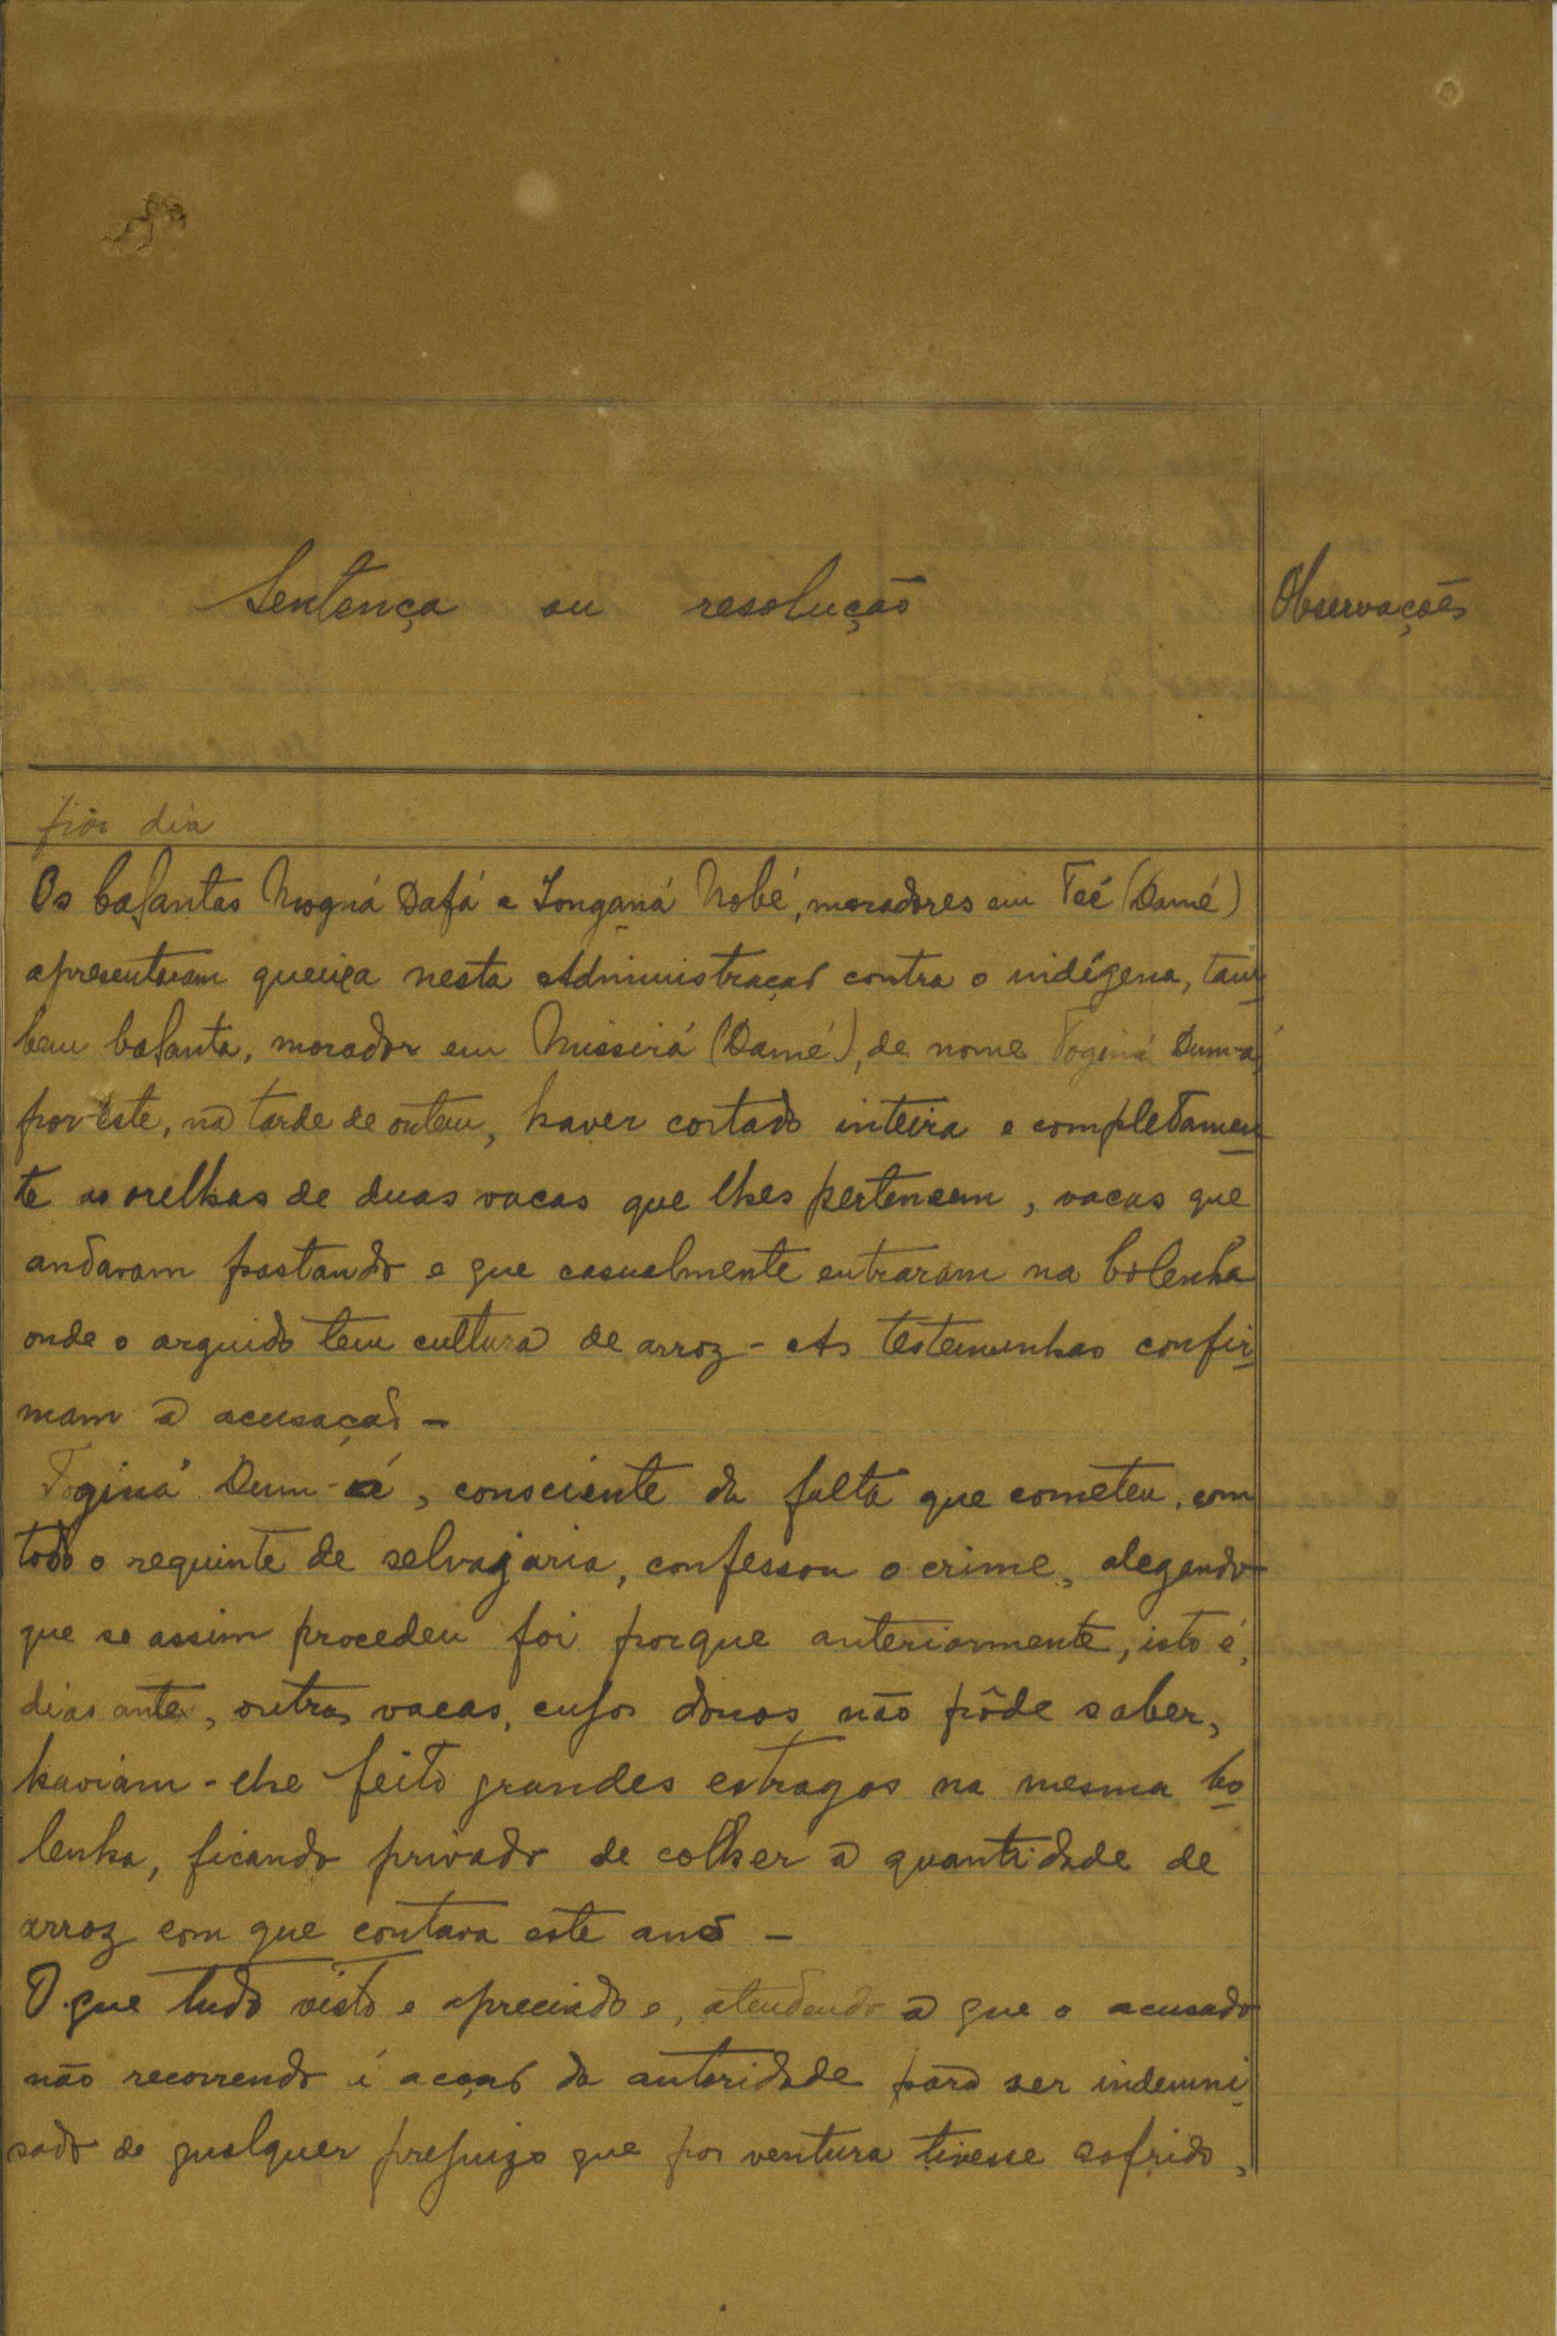 Sentença ou resolução
Observações
por dia
Os balantas Mogná Dafá e Songaná Nobé, moradores em Teé (Damé)
apresentaram queixa nesta Administração contra o indígena, tam
bem balanta, morador em Missirá (Damé), de nome Toginá Dum-á,
por este, na tarde de ontem, haver cortado inteira e completamen
te as orelhas de duas vacas que lhes pertencem, vacas que
andavam pastando e que casualmente entraram na bolenha
onde o arguido tem cultura de arroz - As testemunhas confir
mam a acusação -
Toginá Dum-á, consciente da falta que cometeu, com
todo o requinte de selvajaria, confessou o crime, alegando
que se assim procedeu foi porque anteriormente, isto é,
dias antes, outras vacas, cujos donos não pôde saber,
haviam-lhe feito grandes estragos na mesma bo
lenha, ficando privado de colher a quantidade de
arroz com que contava este ano -
O que tudo visto e apreciado e, atendendo a que o acusado
não recorrendo á acção da autoridade para ser indemni
sado de qualquer prejuizo que por ventura tivesse sofrido,